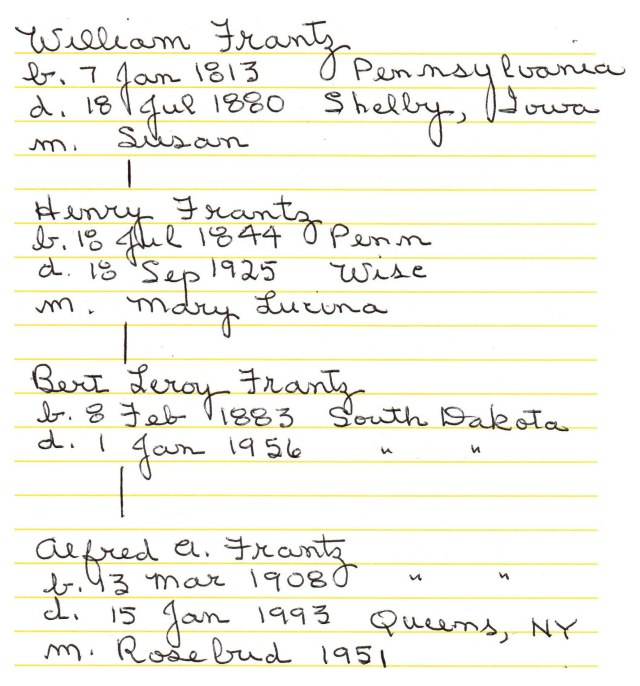 William Frantz
b. 7 Jan 1813 Pennsylvania
d. 18 Jul 1880 Shelby, Iowa
m. Susan
Henry Frantz
b. 18 Jul 1844 Penn
d. 18 Sep 1925 Wisc
m. Mary Lucina
Bert Leroy Frantz
b. 8 Feb 1883 South Dakota
d. 1 Jan 1956 " "
Alfred A. Frantz
b. 13 Mar 1908 " "
d. 15 Jan 1993 Queens, NY
m. Rosebud 1951